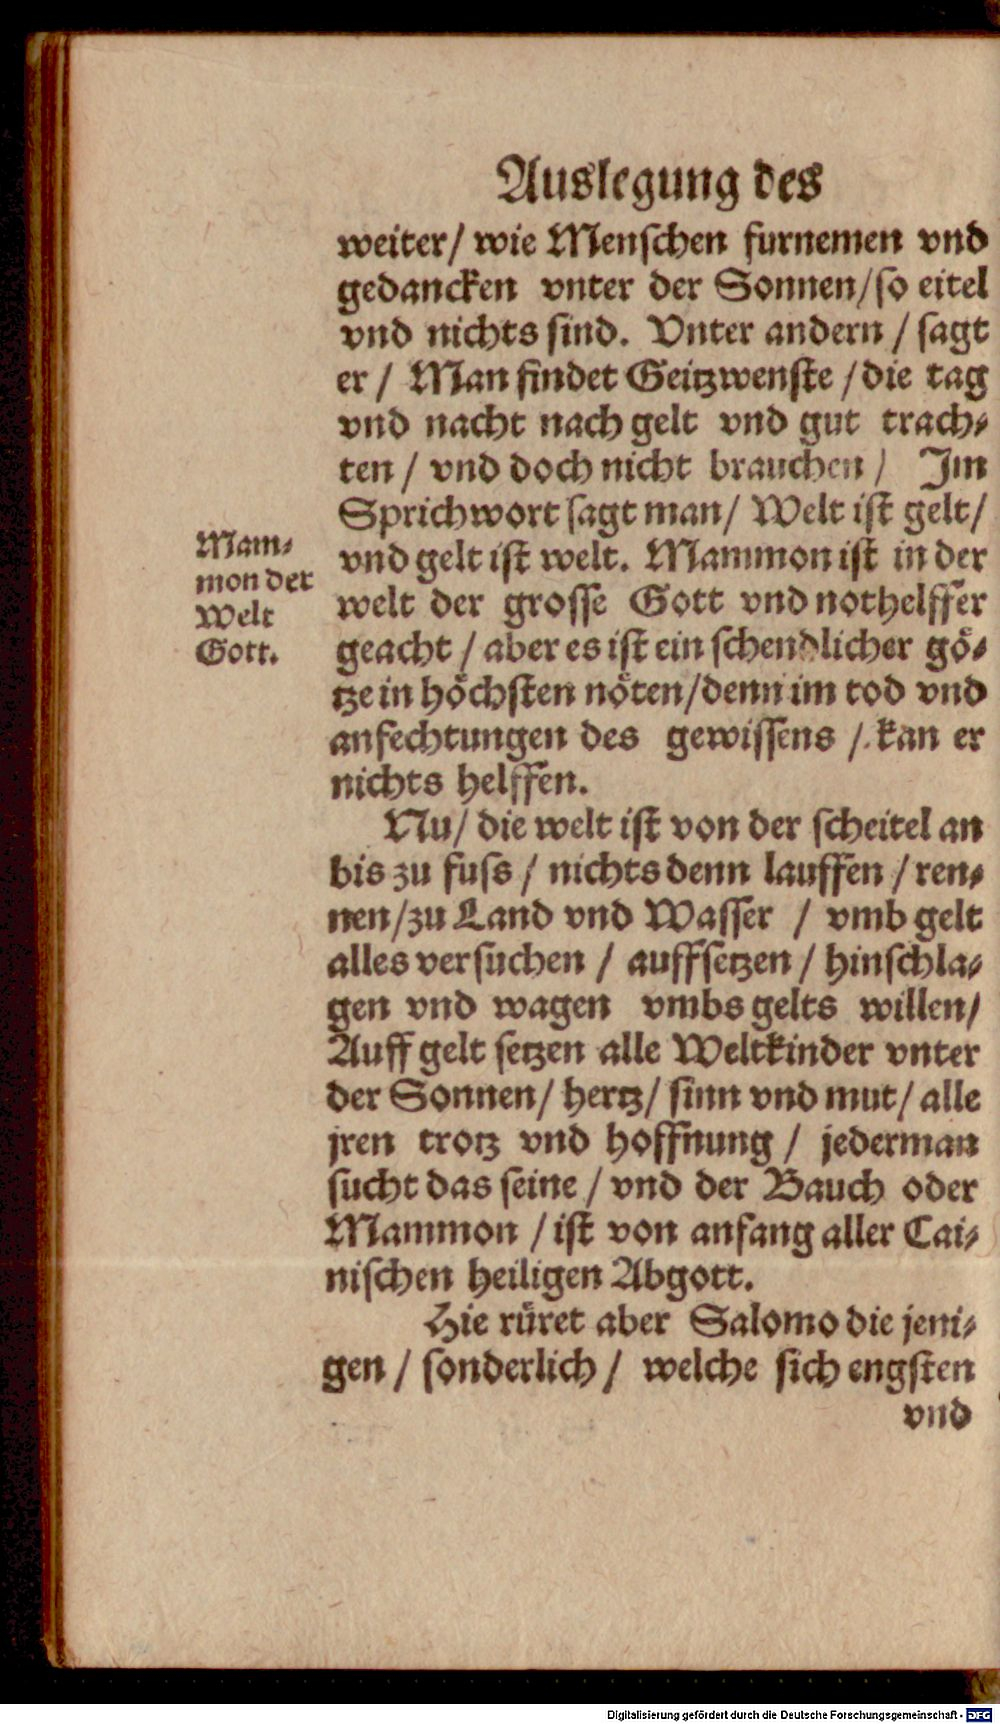 Auslegung des
weiter/ wie Menschen furnemen vnd
gedancken vnter der Sonnen/so eitel
vnd nichts sind. Vnter andern / sagt
er / Man findet Geitzwenste /die tag
vnd nacht nach gelt vnd gut trach-
ten / vnd doch nicht brauchen / Im
Sprichwort sagt man/ Welt ist gelt/
vnd gelt ist welt. Mammon ist in der
welt der grosse Gott vnd nothelffer
geacht / aber es ist ein schendlicher gö-
tze in höchsten nöten/denn im tod vnd
anfechtungen des gewissens / kan er
nichts helffen.
Nu/ die welt ist von der scheitel an
bis zu fuss / nichts denn lauffen / ren-
nen/zu Land vnd Wasser / vmb gelt
alles versuchen / auffsetzen / hinschla-
gen vnd wagen vmbs gelts willen/
Auff gelt setzen alle Weltkinder vnter
der Sonnen/ hertz/ sinn vnd mut/ alle
jren trotz vnd hoffnung / jederman
sucht das seine / vnd der Bauch oder
Mammon / ist von anfang aller Cai-
nischen heiligen Abgott.
Hie rüret aber Salomo die jeni-
gen / sonderlich / welche sich engsten
vnd
Mam-
mon der
Welt
Gott.
Digitalisierung gefördert durch die Deutsche Forschungsgemeinschaft - DFG